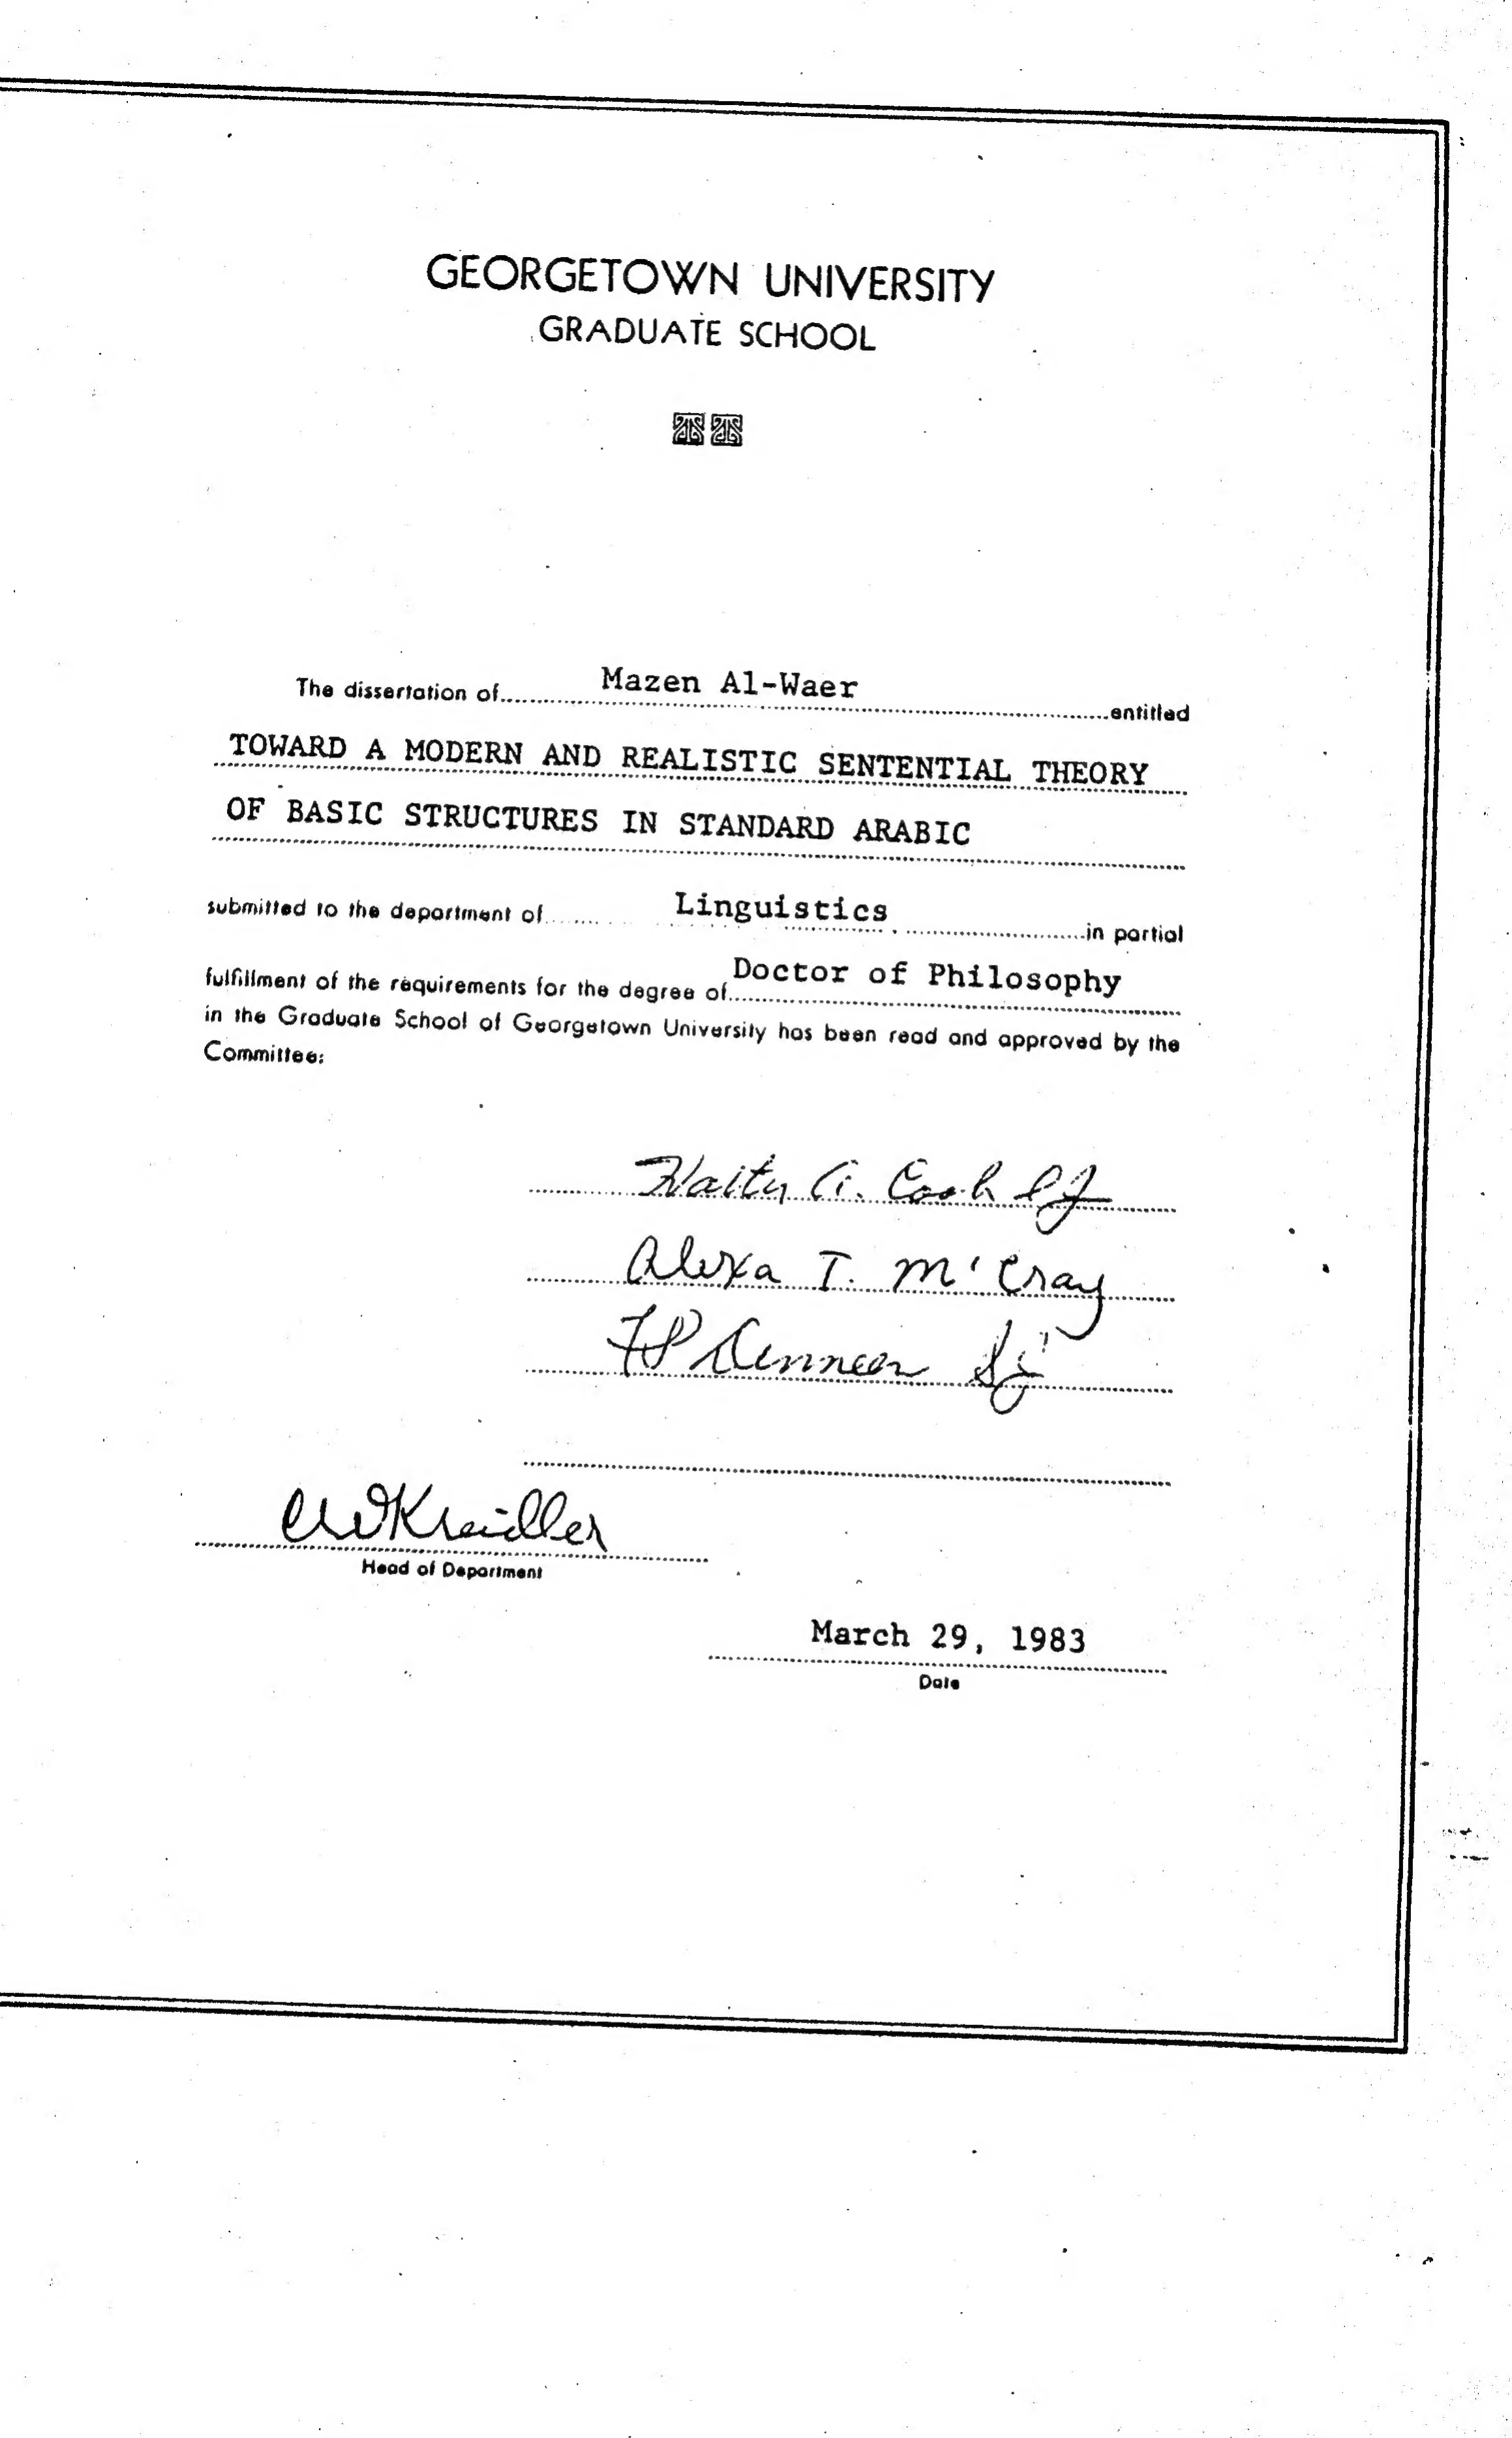 GEORGETOWN UNIVERSITY
GRADUATE SCHOOL
The dissertation of Mazen Al-Waer entitled
TOWARD A MODERN AND REALISTIC SENTENTIAL THEORY
OF BASIC STRUCTURES IN STANDARD ARABIC
submitted to the department of Linguistics in partial
fulfillment of the requirements for the degree of Doctor of Philosophy
in the Graduate School of Georgetown University has been read and approved by the
Committee:
Walter A. Cook SJ
Alexa T. McCray
FP Dinneen SJ
CWKreidler
Head of Department
March 29, 1983
Date